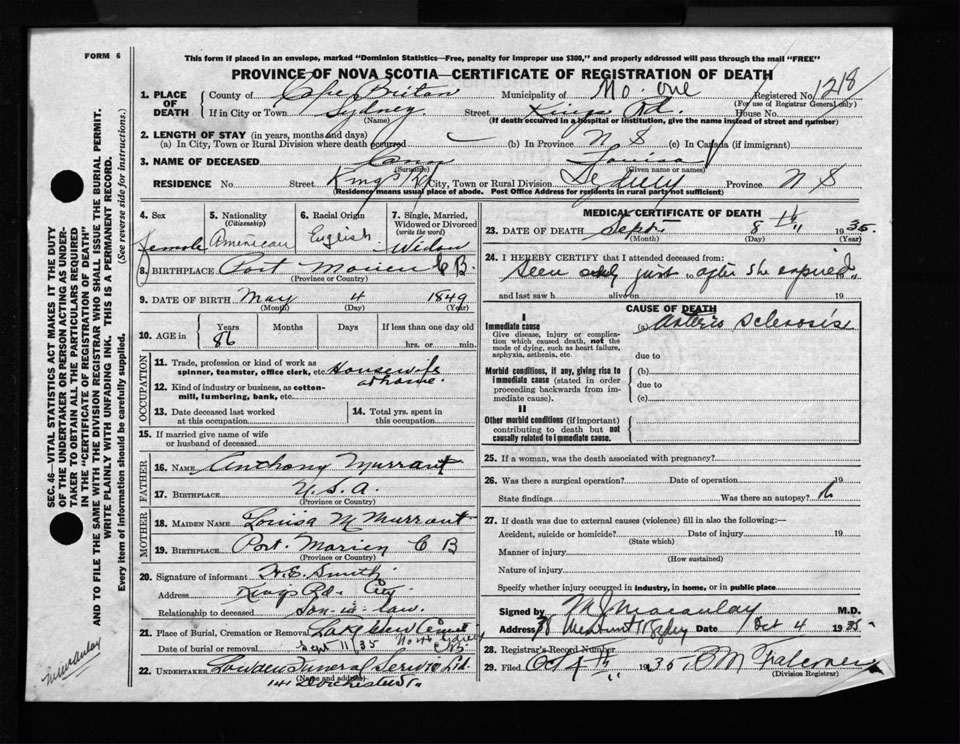 FORM 6
This form if placed in an envelope, marked "Dominion Statistics—Free, penalty for improper use $300," and properly addressed will pass through the mail "FREE"
PROVINCE OF NOVA SCOTIA—CERTIFICATE OF REGISTRATION OF DEATH
1. PLACE OF DEATH County of Cape Breton Municipality of No. One Registered No. 1218
(For use of Registrar General only)
If in City or Town Sydney Street Kings Rd. House No.
(Name) (If death occurred in a hospital or institution, give the name instead of street and number)
2. LENGTH OF STAY (in years, months and days)
(a) In City, Town or Rural Division where death occurred (b) In Province N S (c) In Canada (if immigrant)
3. NAME OF DECEASED Louisa
(Surname) (Given name or names)
RESIDENCE No. Street Kings Rd City, Town or Rural Division Sydney Province N S
(Residence means usual place of abode. Post Office Address for residents in rural parts not sufficient)
4. Sex 5. Nationality (Citizenship) 6. Racial Origin 7. Single, Married, Widowed or Divorced (write the word)
female American English Widow
8. BIRTHPLACE Port Morien C B.
(Province or Country)
9. DATE OF BIRTH May 4 1849
(Month) (Day) (Year)
10. AGE in Years Months Days If less than one day old
86 hrs. or min.
OCCUPATION
11. Trade, profession or kind of work as spinner, teamster, office clerk, etc. Housewife
12. Kind of industry or business, as cotton-mill, lumbering, bank, etc. at home.
13. Date deceased last worked at this occupation 14. Total yrs. spent in this occupation
15. If married give name of wife or husband of deceased
FATHER
16. NAME Anthony Murrant
17. BIRTHPLACE U.S.A.
(Province or Country)
MOTHER
18. MAIDEN NAME Louisa M Murrant
19. BIRTHPLACE Port. Morien C B
(Province or Country)
20. Signature of informant Smith
Address Kings Rd. City
Relationship to deceased Son-in-law.
21. Place of Burial, Cremation or Removal
Date of burial or removal Sept 11/35 North Sydney
22. UNDERTAKER Funeral Service Ltd.
(Name and address)
141 Dorchester St.
MEDICAL CERTIFICATE OF DEATH
23. DATE OF DEATH Sept. 8th 1935.
(Month) (Day) (Year)
24. I HEREBY CERTIFY that I attended deceased from:
Seen only just after she expired.
and last saw h alive on 19
CAUSE OF DEATH
I
Immediate cause (a) Arterio Sclerosis
Give disease, injury or complication which caused death, not the mode of dying, such as heart failure, asphyxia, asthenia, etc.
due to
Morbid conditions, if any, giving rise to immediate cause (stated in order proceeding backwards from immediate cause). (b)
due to
(c)
II
Other morbid conditions (if important) contributing to death but not causally related to immediate cause.
25. If a woman, was the death associated with pregnancy?
26. Was there a surgical operation? Date of operation 19
State findings Was there an autopsy?
27. If death was due to external causes (violence) fill in also the following:—
Accident, suicide or homicide? Date of injury 19
(State which)
Manner of injury
(How sustained)
Nature of injury
Specify whether injury occurred in industry, in home, or in public place
Signed by Macaulay M.D.
Address Date Oct 4 1935-
28. Registrar's Record Number
29. Filed Oct 4th 1935 Falconer
(Division Registrar)
SEC. 46—VITAL STATISTICS ACT MAKES IT THE DUTY
OF THE UNDERTAKER OR PERSON ACTING AS UNDER-
TAKER TO OBTAIN ALL THE PARTICULARS REQUIRED
IN THE "CERTIFICATE OF REGISTRATION OF DEATH"
AND TO FILE THE SAME WITH THE DIVISION REGISTRAR WHO SHALL ISSUE THE BURIAL PERMIT.
WRITE PLAINLY WITH UNFADING INK. THIS IS A PERMANENT RECORD.
Every item of information should be carefully supplied. (See reverse side for instructions.)